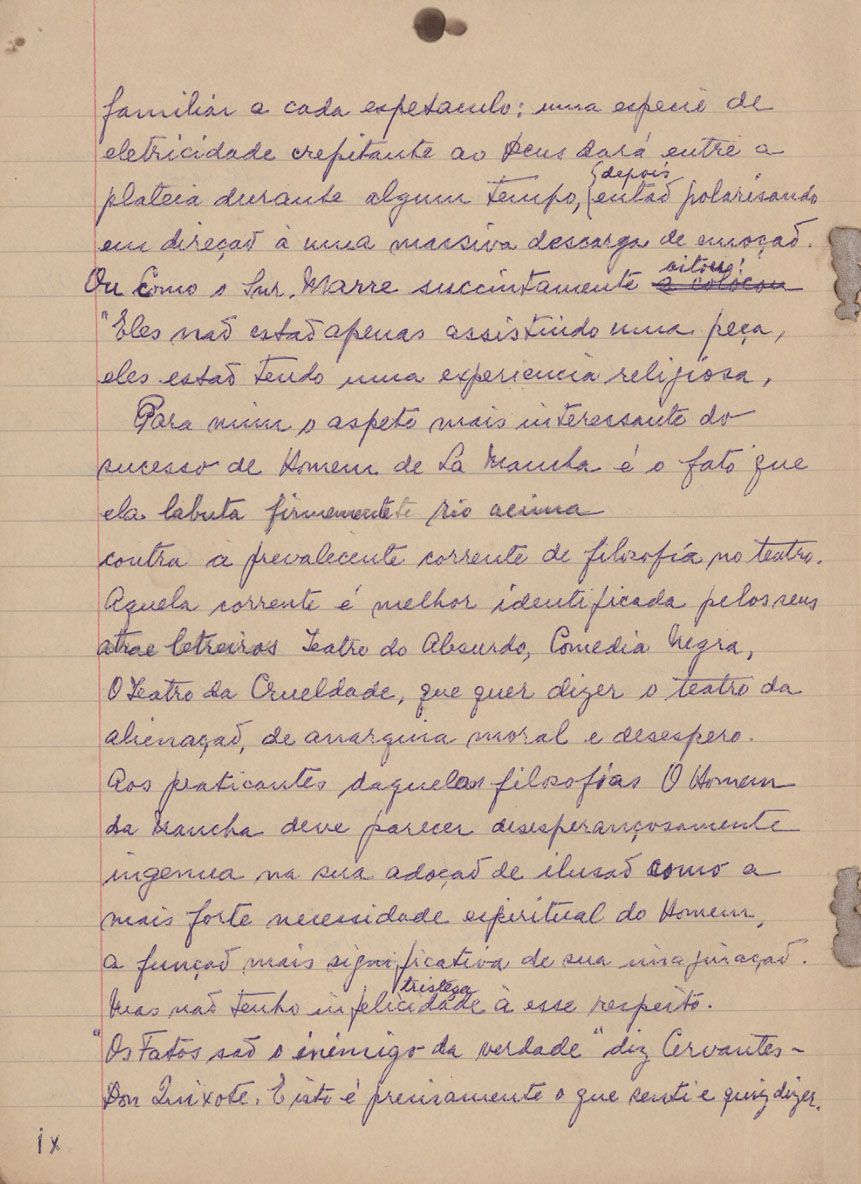 familiar a cada espetaculo: uma especie de
eletricidade crepitante ao Deus dará entre a
plateia durante algum tempo, {depois {então polarisando
em direção à uma massiva descarga de emoção.
Ou Como o Snr. Marre succintamente a colocou citou:
"Eles não estão apenas assistindo uma peça,
eles estão tendo uma experiencia religiosa,
Para mim o aspeto mais interessante do
sucesso de Homem de La Mancha é o fato que
ela labuta firmemente rio acima
contra a prevalecente corrente de filosofia no teatro.
Aquela corrente é melhor identificada pelos seus
letreiros Teatro do Absurdo, Comedia Negra,
O Teatro da Crueldade, que quer dizer o teatro da
alienação, de anarquia moral e desespero.
Aos praticantes daquelas filosofias O Homem
da Mancha deve parecer desesperançosamente
ingenua na sua adoção de ilusão como a
mais forte necessidade espiritual do Homem,
a função mais significativa de sua
Mas não tenho infelicidade tristeza à esse respeito.
"Os Fatos são o enemigo da verdade" diz Cervantes-
Don Quixote. E isto é precisamente o que senti e quiz dizer.
ix